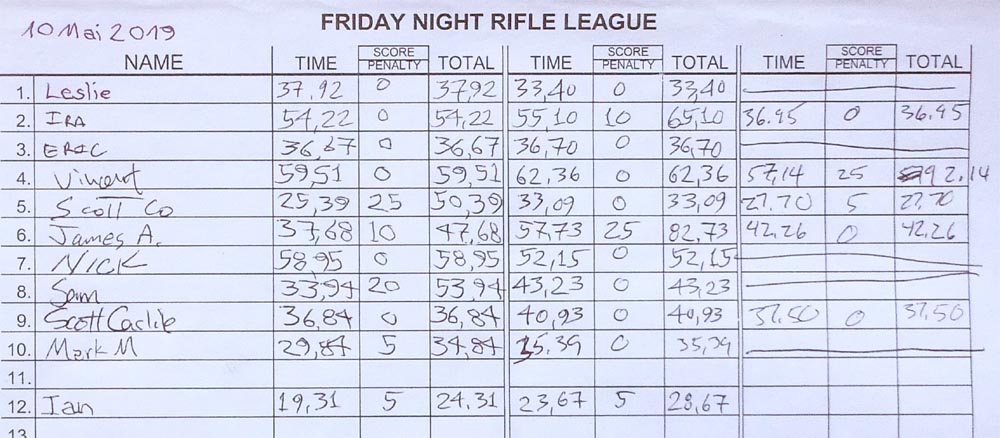 FRIDAY NIGHT RIFLE LEAGUE
10 Mai 2019
NAME TIME SCORE PENALTY TOTAL TIME SCORE PENALTY TOTAL TIME SCORE PENALTY TOTAL
1. Leslie 37,92 0 37,92 33,40 0 33,40
2. IRA 54,22 0 54,22 55,10 10 65,10 36.95 0 36.95
3. ERIC 36,67 0 36,67 36,70 0 36,70
4. Vincent 59,51 0 59,51 62,36 0 62,36 57,14 25 92,14
5. Scott Co 25,39 25 50,39 33,09 0 33,09 27.70 5 27,70
6. James A. 37,68 10 47,68 57,73 25 82,73 42,26 0 42,26
7. NICK 58,95 0 58,95 52,15 0 52,15
8. Sam 33,94 20 53,94 43,23 0 43,23
9. Scott Carlile 36,84 0 36,84 40,93 0 40,93 37.50 0 37,50
10. Mark M 29,84 5 34,84 35,39 0 35,39
11.
12. Ian 19,31 5 24,31 23,67 5 28,67
13